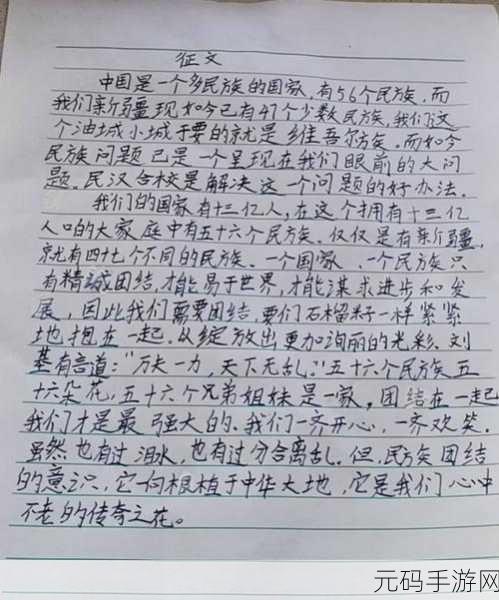 征文
中国是一个多民族的国家,有56个民族,而
我们新疆现如今已有47个少数民族,我们这
个油城小城主要的就是维吾尔族,而如今
民族问题已是一个呈现在我们眼前的大问
题,民汉合校是解决这一个问题的好办法。
我们的国家有十三亿人,在这个拥有十三亿
人口的大家庭中有五十六个民族,仅仅是有新疆,
就有四十七个不同的民族。一个国家、一个民族只
有精诚团结,才能易于世界,才能谋求进步和发
展,因此我们需要团结,要们石榴籽一样紧紧
地抱在一起,从绽放出更加洵丽的光彩,刘
基有言道:“万夫一力,天下无乱;”五十六个民族五
十六朵花,五十六个兄弟姐妹是一家,团结在一起
我们才是最强大的、我们一齐开心,一齐欢笑,
虽然也有过泪水,也有过分合离乱,但,民族团结
的意识,它一向根植于中华大地,它是我们心中
不老的传奇之花。
元码手游网